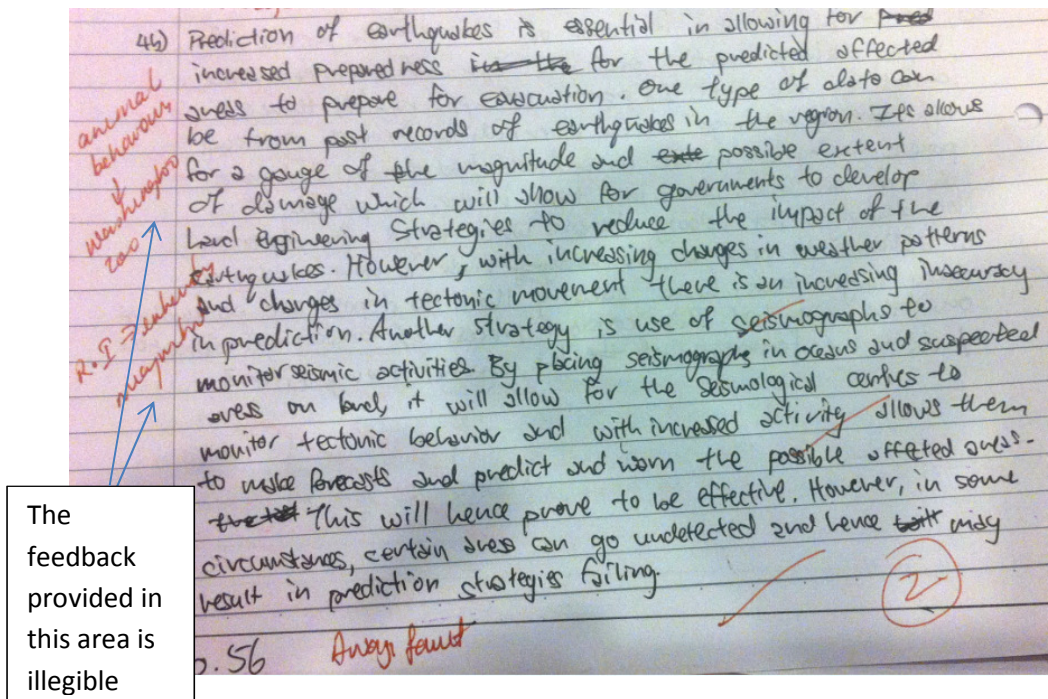 4b) Prediction of earthquakes is essential in allowing for
increased preparedness for the predicted affected
areas to prepare for evacuation. One type of data can
be from past records of earthquakes in the region. Its allows
for a gauge of the magnitude and possible extent
of damage which will allow for governments to develop
Engineering Strategies to reduce the impact of the
earthquakes. However, with increasing changes in weather patterns
and changes in tectonic movement there is an increasing inaccuracy
in prediction. Another strategy is use of seismographs to
monitor seismic activities. By placing seismographs in oceans and suspected
areas on land, it will allow for the seismological centres to
monitor tectonic behavior and with increased activity allows them
to make forecasts and predict and warn the possible affected areas.
This will hence prove to be effective. However, in some
circumstances, certain areas can go undetected and hence may
result in prediction strategies failing.
animal
behaviour
↓
washington
zoo
R.I →
2
.56
The
feedback
provided in
this area is
illegible